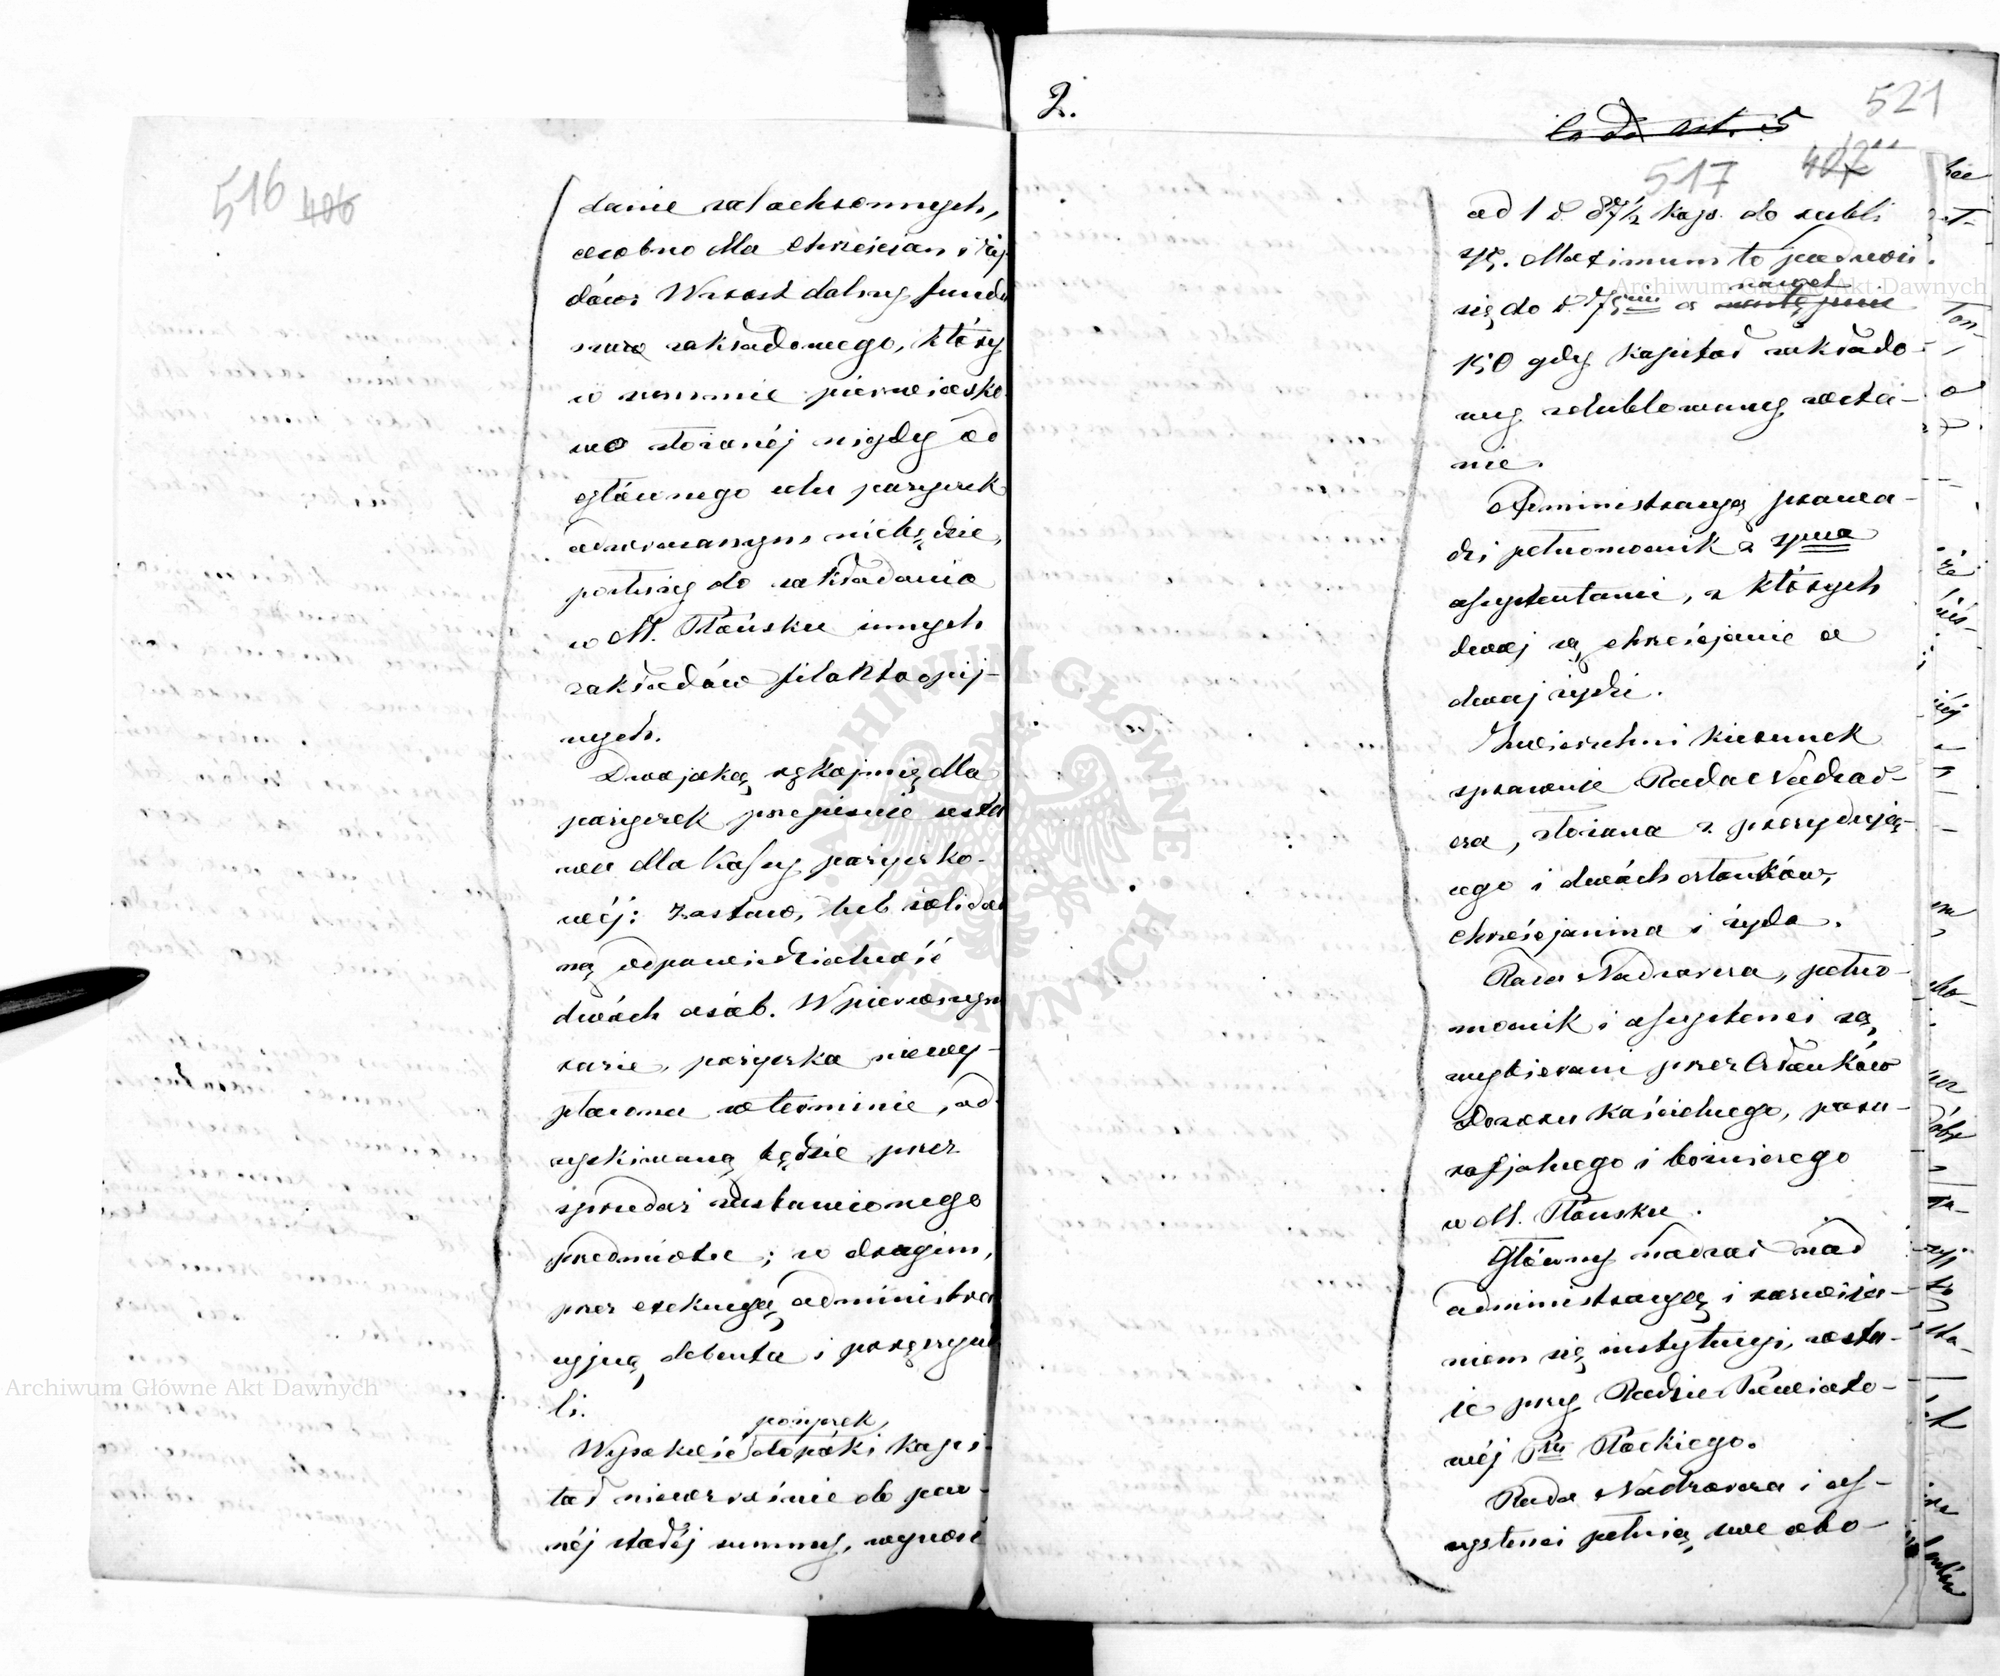 516 406
danie rat achsonnych,
osobno dla chrześcian i ży-
dów. Wzrost dalszy fundu
szu zakładowego, który
w summie pierwiastko
wo złożonéj nigdy od
głównego celu pożyczek
odwracanym niebędzie,
posłuży do zakładania
w M. Płońsku innych
zakładów filantropij-
nych.
Dwojaką rękojmię dla
pożyczek przepisuje usta
wa dla Kassy pożyczko-
wéj: zastaw, lub solidar
ną odpowiedzialność
dwóch osób. W pierwszym
razie, pożyczka niewy-
płacona w terminie, od-
zyskiwaną będzie przez
sprzedaż zastawionego
przedmiotu; w drugim,
przez exekucyą administra
cyjną debenta i poręczycie
li.
pożyczek,
Wysokość dopóki kapi-
tał niewzrośnie do pew-
néj stałéj summy, wynosi
2.
521
517 407
od 1 d. 87½ kop. do rubli
75. Maximum to podnosi
się do r. 75 a
nawet
150 gdy kapitał zakłado-
wy zdublowany zosta-
nie.
Administracyą prowa-
dzi pełnomocnik z
assystentami, z których
dwaj są chrześcjanie a
dwaj żydzi.
Zwierzchni kierunek
sprawuje Rada Nadzor-
cza, złożona z prezydują-
cego i dwóch członków,
chrześcjanina i żyda.
Rada Nadzorcza, pełno-
mocnik i assystenci są
wybierani przez Członków
Dozoru kościelnego, para-
fjalnego i bóżniczego
w M. Płońsku.
Główny nadzór nad
administracyą i rozwija-
niem się instytucyi, zosta-
je przy Radzie Powiato-
wéj Ptu Płockiego.
Rada Nadzorcza i as-
systenci pełnią swe obo-
Archiwum Główne Akt Dawnych
Archiwum Główne Akt Dawnych
ARCHIWUM GŁÓWNE AKT DAWNYCH